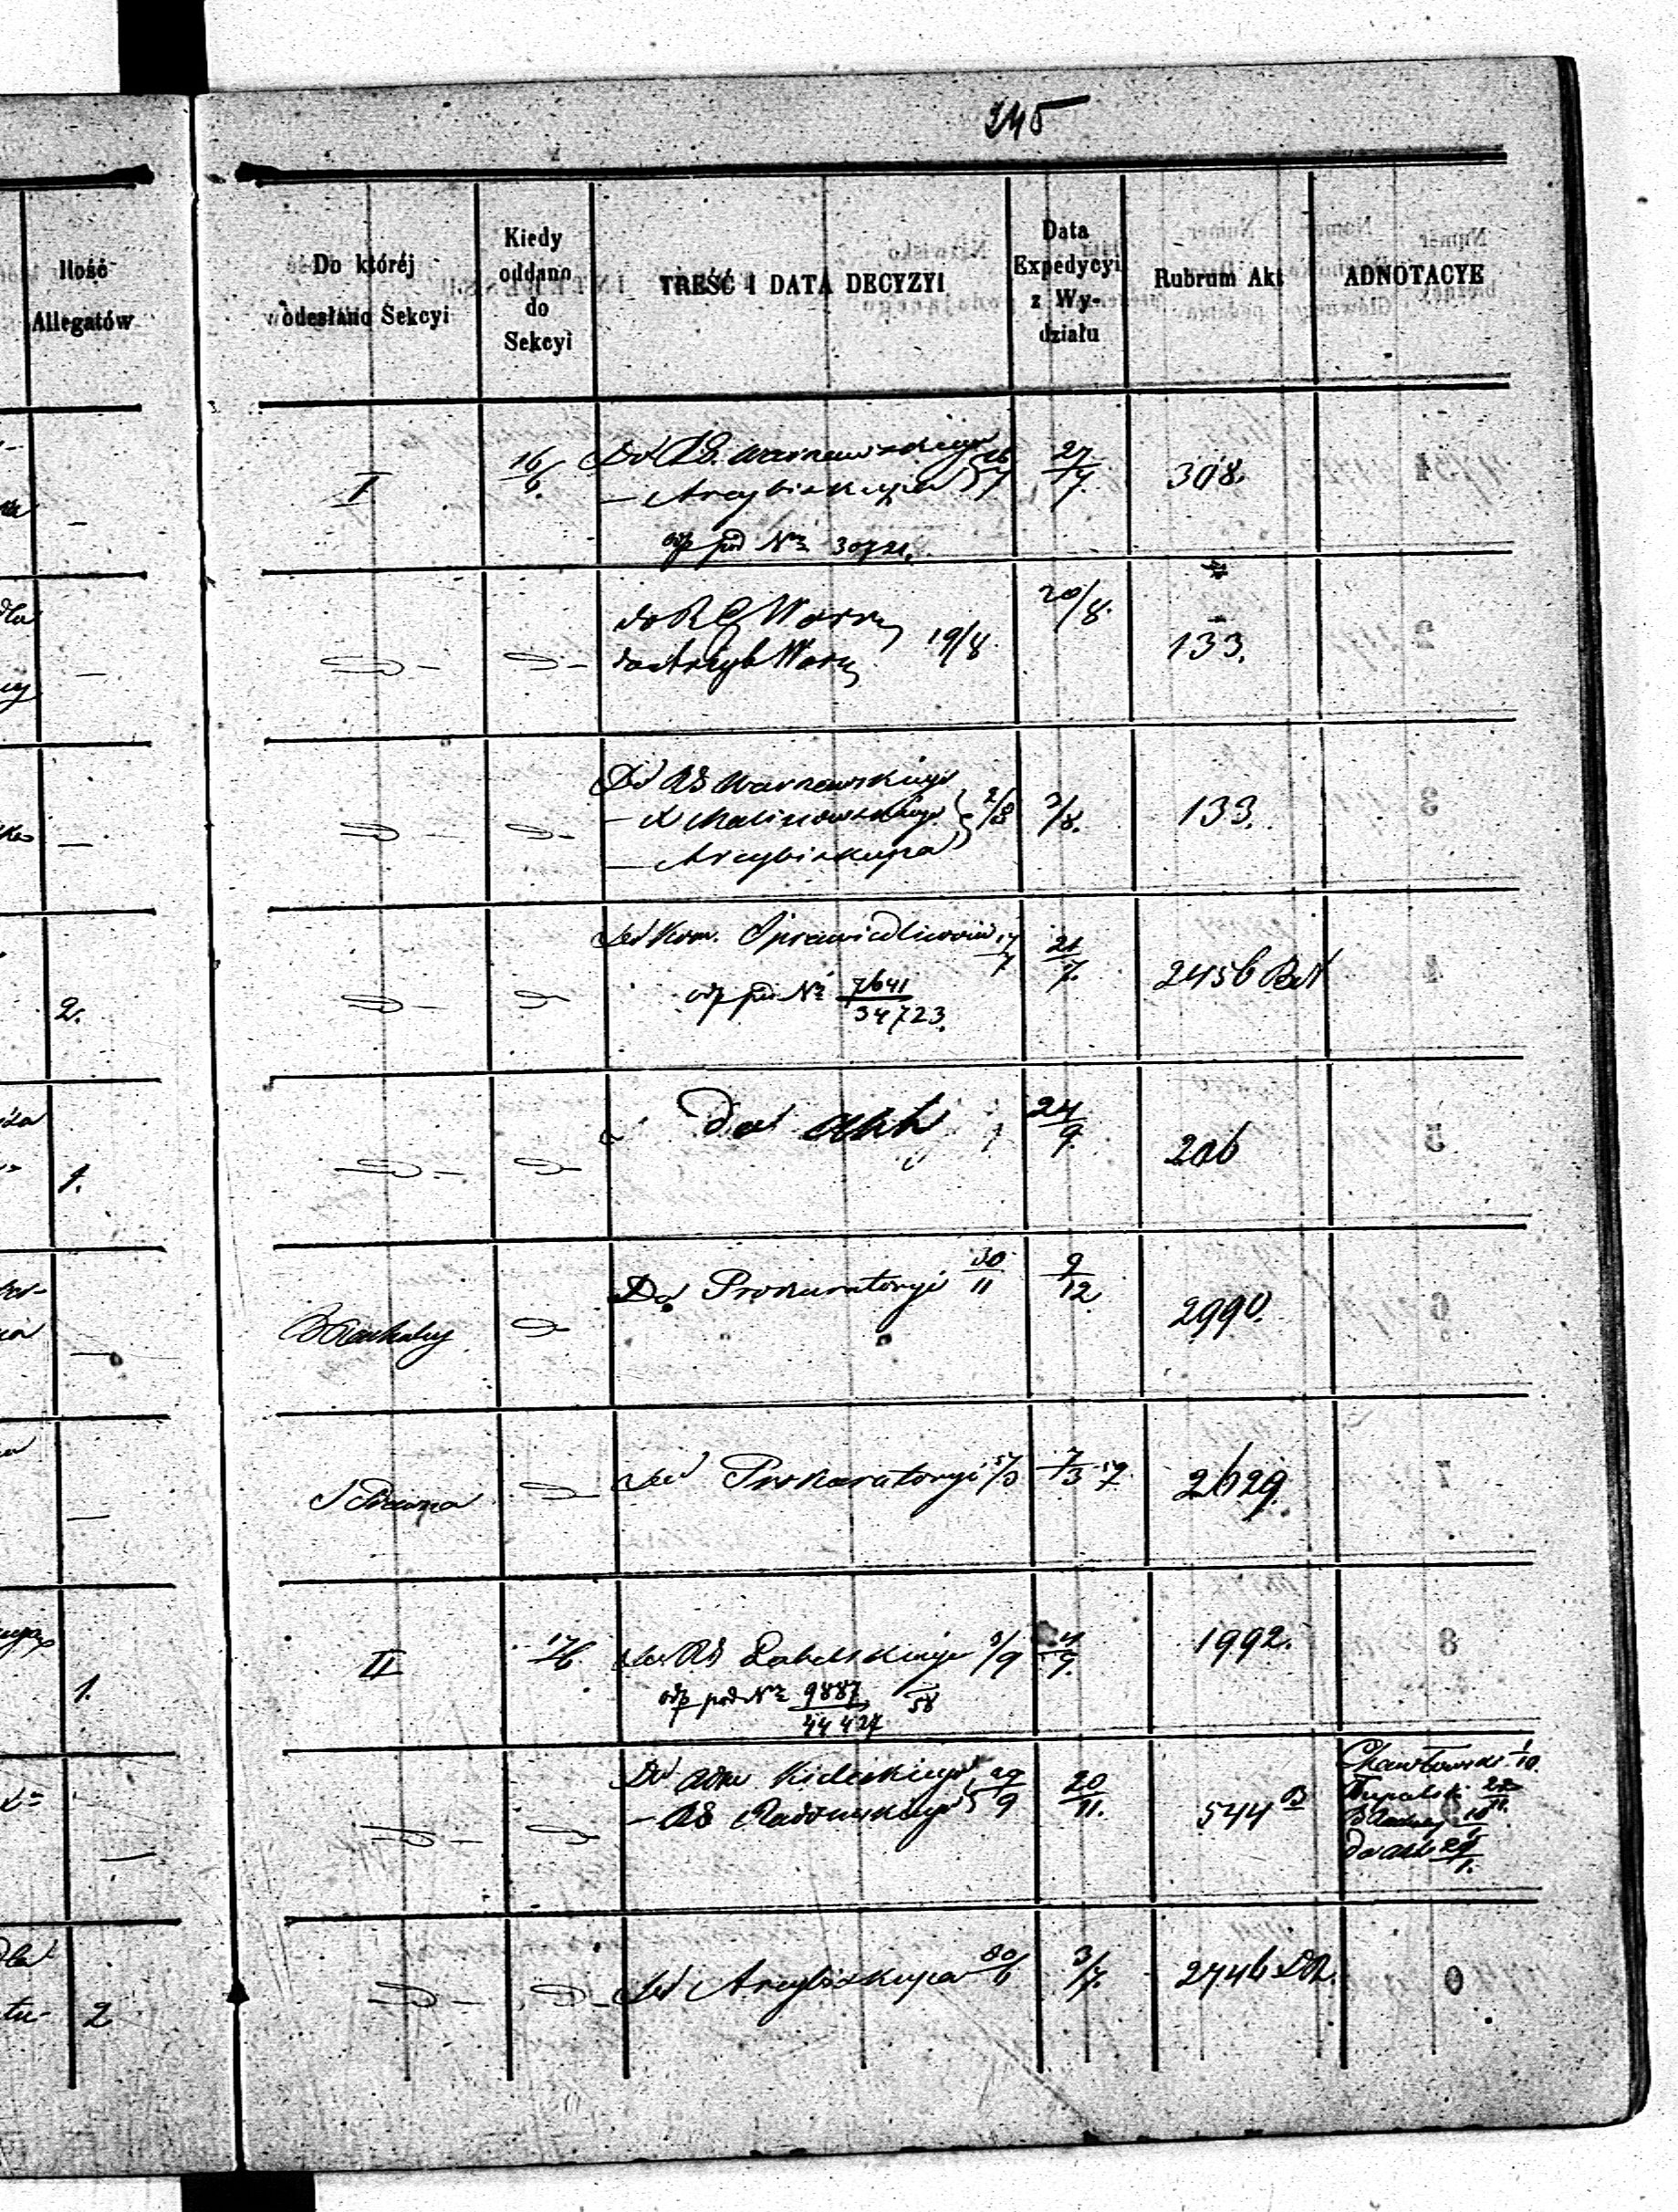 245
Ilość
Allegatów
Do któréj
odesłano Sekcyi
Kiedy
oddano
do
Sekcyi
TREŚĆ I DATA DECYZYI
Data
Expedycyi
z Wy-
działu
Rubrum Akt
ADNOTACYE
I 16/6 Do RG. Warszawskiego 26/7 27/7 308.
— Arcybiskupa
odp pod Nr 30721.
do RG Warsz 19/8 20/8. 133.
do Arcyb Warsz
Do RG Warszawskiego 2/8 3/8. 133.
— X Malinowskiego
— Arcybiskupa
2. Do Kom. Sprawiedliwości 17/7 21/7. 2456
odp pod Nr 7641/34723.
1. Do akt 24/9 206
Do Prokuratoryi 30/11 9/12 2990.
Prawna Do Prokuratoryi 5/3 7/3 57. 2629.
1. II 17/6 Do RG Lubelskiego 3/9 4/9. 1992.
odp pod Nr 9887/44427 /58
Do Adm Kieleckiego 29/9 20/11. 544 B
— RG Radomskiego
do akt 29/1.
2 Do Arcybiskupa 30/6 3/7. 2746